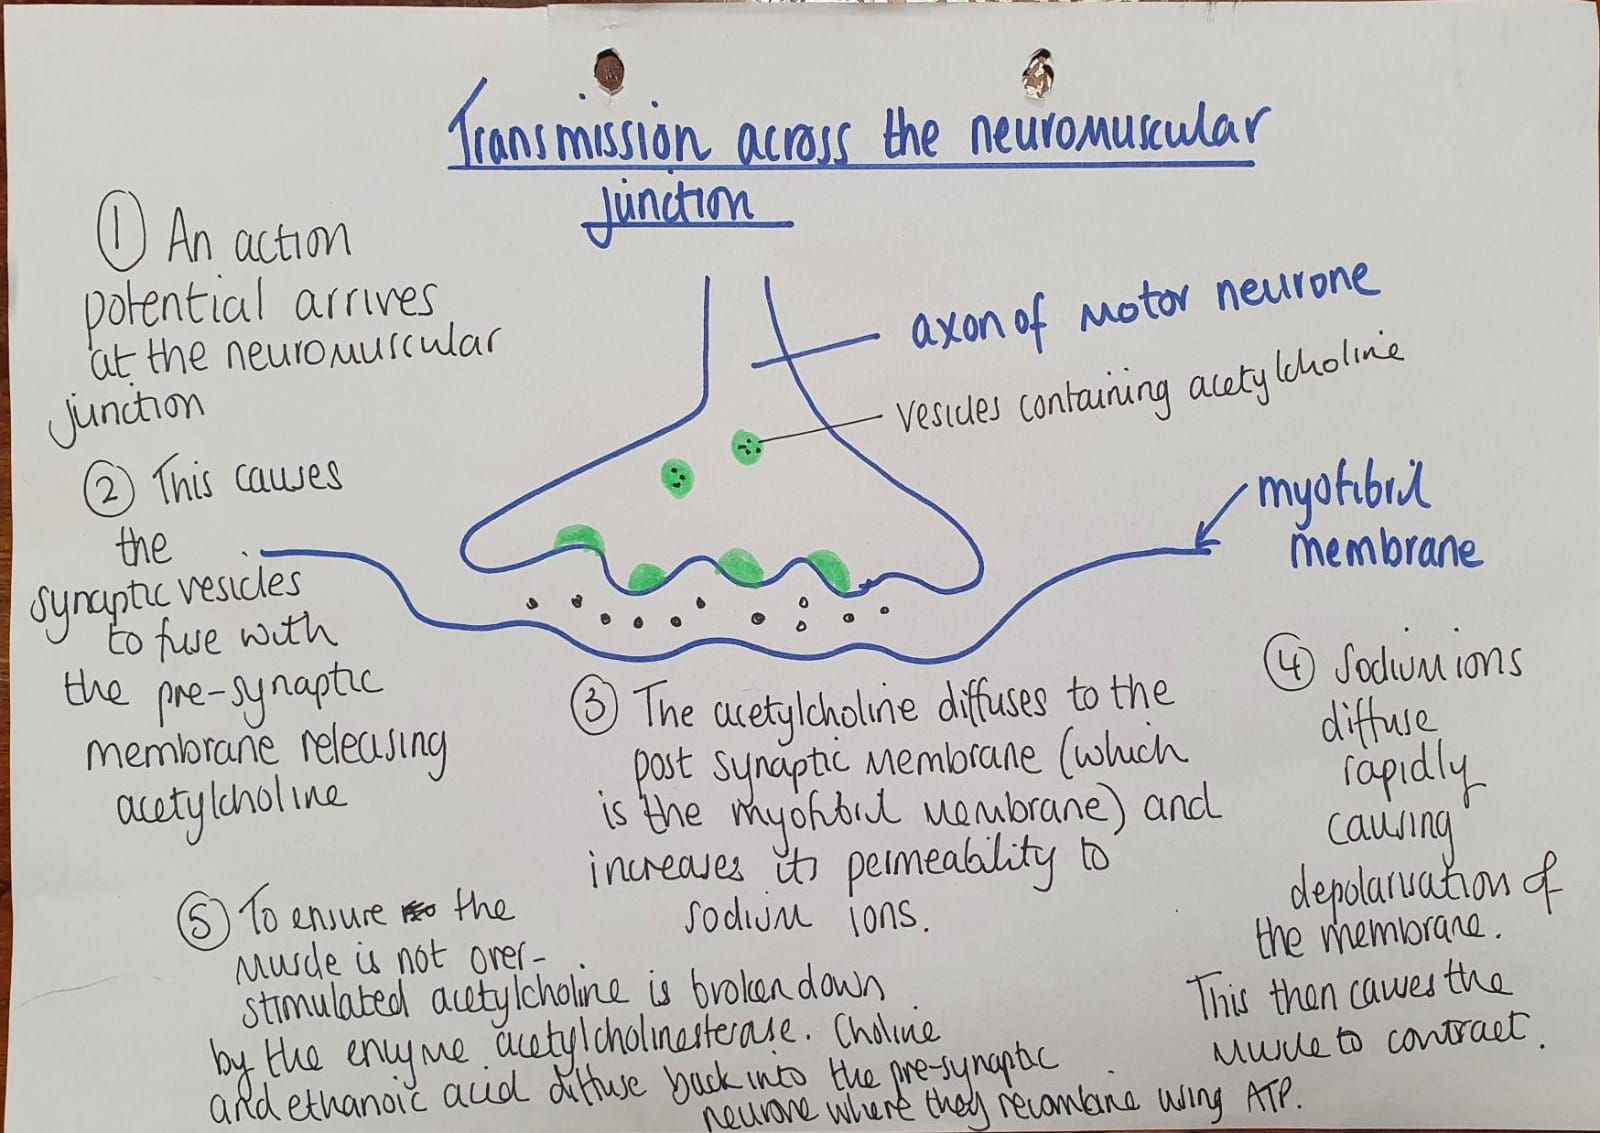 Transmission across the neuromuscular
junction
① An action
potential arrives
at the neuromuscular
junction
axon of motor neurone
vesicles containing acetylcholine
myofibril
membrane
② This causes
the
synaptic vesicles
to fuse with
the pre-synaptic
membrane releasing
acetylcholine
③ The acetylcholine diffuses to the
post synaptic membrane (which
is the myofibril membrane) and
increases its permeability to
sodium ions.
④ Sodium ions
diffuse
rapidly
causing
depolarisation of
the membrane.
This then causes the
muscle to contract.
⑤ To ensure the
muscle is not over-
stimulated acetylcholine is broken down
by the enzyme acetylcholinesterase. Choline
and ethanoic acid diffuse back into the pre-synaptic
neurone where they recombine using ATP.